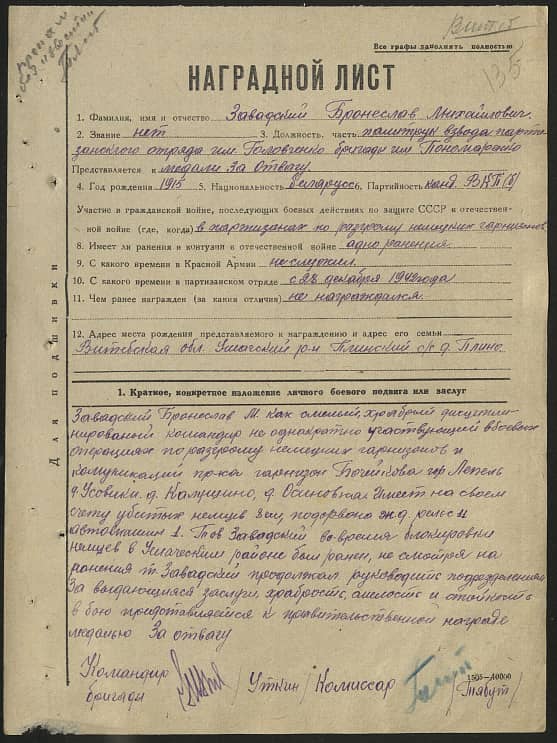 пропал
без известий
Витеб
135
Все графы заполнять полностью
НАГРАДНОЙ ЛИСТ
1. Фамилия, имя и отчество Завадский Бронеслав Михайлович.
2. Звание нет 3. Должность, часть политрук взвода парти
занского отряда им. Головченко бригады им Пономаренко
Представляется к медали За Отвагу.
4. Год рождения 1915 5. Национальность беларусс 6. Партийность канд. ВКП(б)
Участие в гражданской войне, последующих боевых действиях по защите СССР и отечествен-
ной войне (где, когда) в партизанах по разгрому немецких гарнизонов
8. Имеет ли ранения и контузии в отечественной войне одно ранения.
9. С какого времени в Красной Армии не служил.
10. С какого времени в партизанском отряде с 28 декабря 1942 года
11. Чем ранее награжден (за какия отличия) не награждался.
12. Адрес места рождения представляемого к награждению и адрес его семьи
Витебская обл. Ушачский р-н Плинский с/с д. Плино.
Для подшивки
1. Краткое, конкретное изложение личного боевого подвига или заслуг
Завадский Бронеслав М. как смелый, храбрый дисципли-
нированый командир не однократно участвующий в боевых
операциях по разгрому немецких гарнизонов и
комуникаций пр-ка гарнизон Бочейкова гор Лепель
д. Усовики, д. Калушино, д. Осиновка Имеет на своем
счету убитых немцев 3 ел, подорвано жд. рельс 4
автомашин 1. Тов Завадский во время блокировки
немцев в Ушачеським районе был ранен, не смотря на
ранения т. Завадский продолжал руководить подразделением
За выдающиеся заслуги, храбрость, смелость и стойкость
в бою представляется к правительственной награде
медалью За отвагу
Командир /Уткин/ Комиссар /Тябут/
бригады
1505—10000